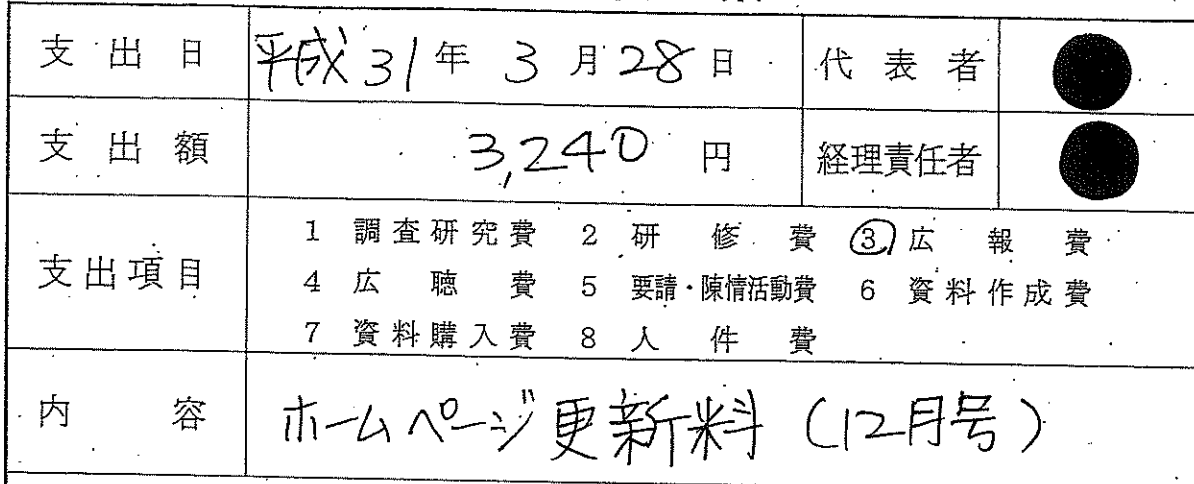 支出日 平成31年3月28日 代表者
支出額 3,240円 経理責任者
支出項目 1 調査研究費 2 研修費 3 広報費
4 広聴費 5 要請・陳情活動費 6 資料作成費
7 資料購入費 8 人件費
内容 ホームページ更新料(12月号)